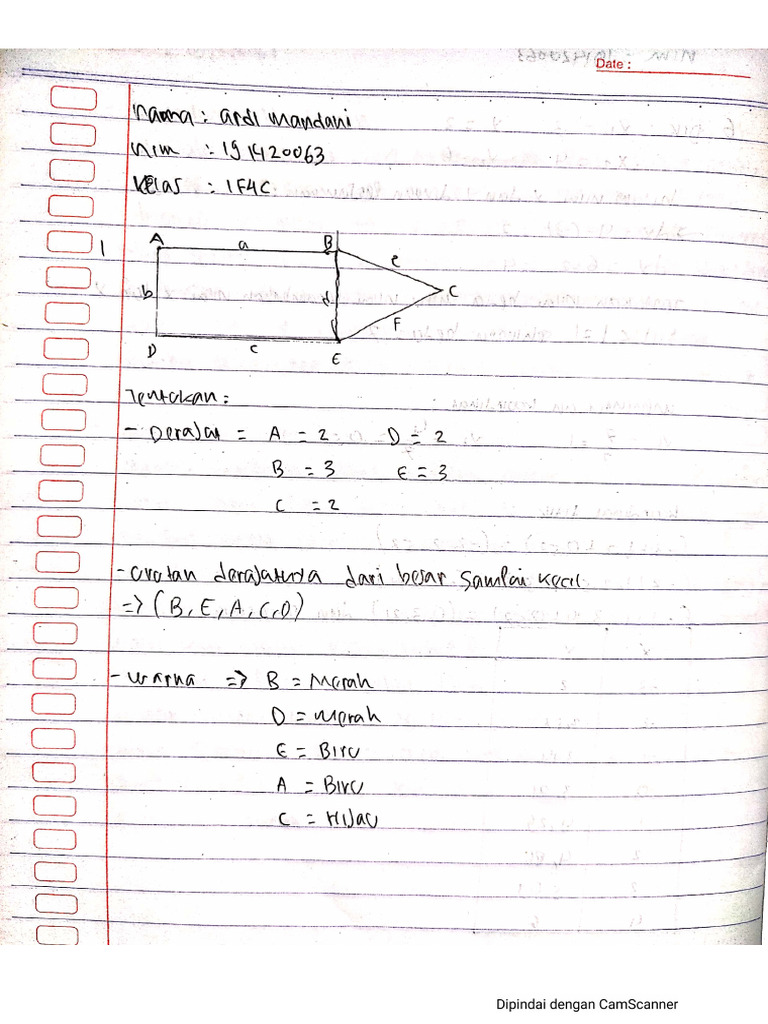 Date :
nama : ardi mandani
nim : 191420063
kelas : IF4C
1
A a B
e
b d C
F
D c E
Tentukan :
- Derajat = A = 2 D = 2
B = 3 E = 3
C = 2
- Urutan derajatnya dari besar sampai kecil
=> (B, E, A, C, D)
- warna => B = Merah
D = merah
E = Biru
A = Biru
C = Hijau
Dipindai dengan CamScanner